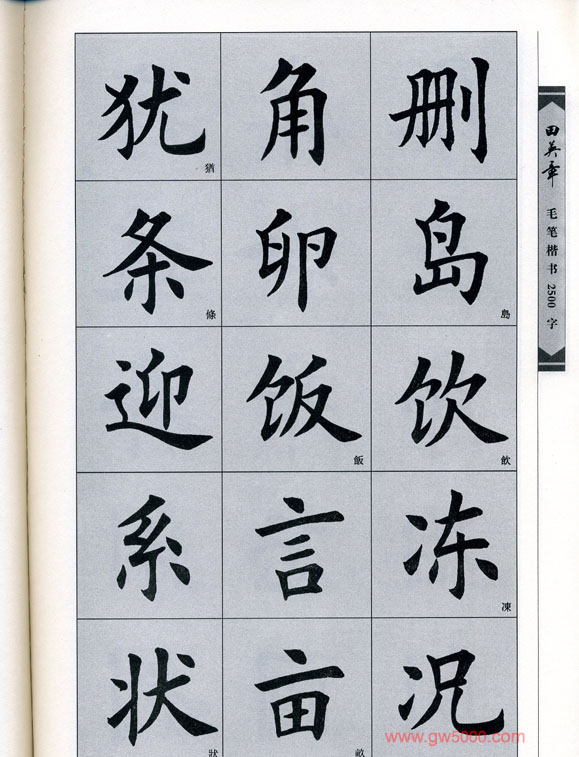 犹 角 删
猶
条 卵 岛
條 島
迎 饭 饮
飯 飲
系 言 冻
凍
状 亩 况
狀 畝
田英章 毛笔楷书2500字
www.gw5000.com